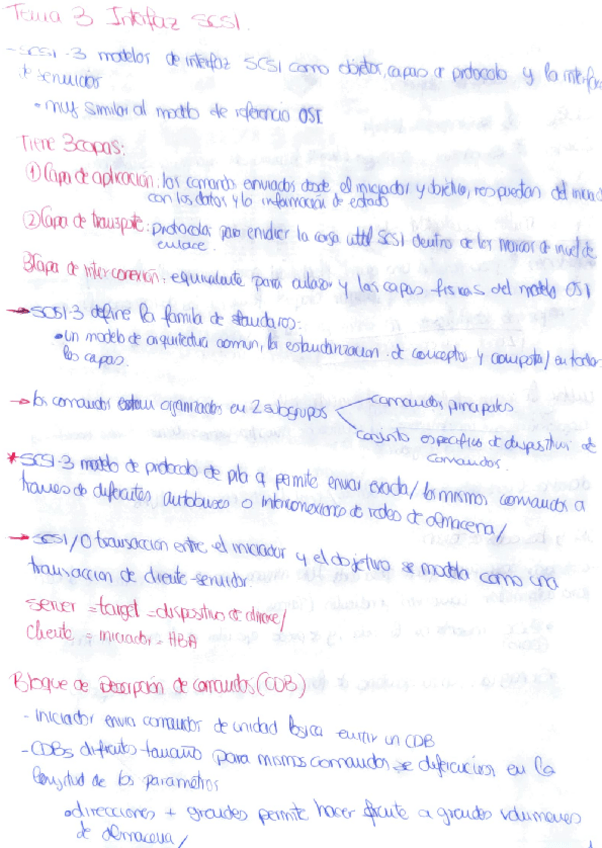 Tema 3 Interfaz SCSI.
- SCSI-3 modelos de interfaz SCSI como objetos, capas de protocolo y la interfaz
de servidor
• muy similar al modelo de referencia OSI
Tiene 3 capas:
① Capa de aplicación: los comandos enviados desde el iniciador y objetivo, respuestas del
con los datos y la información de estado
② Capa de transporte: protocolos para enviar la carga util SCSI dentro de los marcos de nivel de
enlace.
③ Capa de interconexión: equivalente para enlazar y las capas fisicas del modelo OSI
→ SCSI-3 define la familia de standares:
• un modelo de arquitectura comun, la estandarizacion de conceptos y comporta/ en todas
las capas.
→ los comandos estan organizados en 2 subgrupos
comandos principales
conjunto especifico de dispositivos de
comandos.
* SCSI-3 modelo de protocolo de pila q permite enviar exacta/ los mismos comandos a
traves de diferentes autobuses o interconexiones de redes de almacena/
→ SCSI I/O transaccion entre el iniciador y el objetivo se modela como una
transaccion de cliente-servidor.
server = target = dispositivo de almace/
Cliente = iniciador = HBA
Bloque de Descripción de comandos (CDB)
- iniciador envia comandos de unidad logica en un CDB
- CDBs diferente tamaño para mismos comandos se diferencian en la
longitud de los parametros
• direcciones + grandes permite hacer frente a grandes volumenes
de almacena/